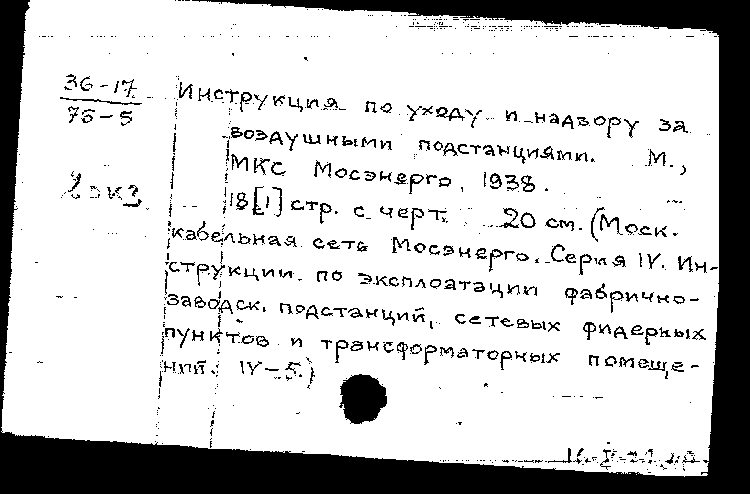 36-17
75-5
2 экз
Инструкция по уходу и надзору за
воздушными подстанциями. М.,
МКС Мосэнерго, 1938.
18[1] стр. с черт. 20 см. (Моск.
кабельная сеть Мосэнерго. Серия IV. Ин-
струкции по эксплоатации фабрично-
заводск. подстанций, сетевых фидерных
пунктов и трансформаторных помеще-
ний. IV-5.)